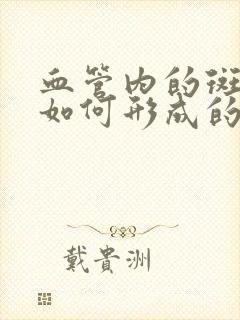 血管内的斑
如何形成的
戴貴洲